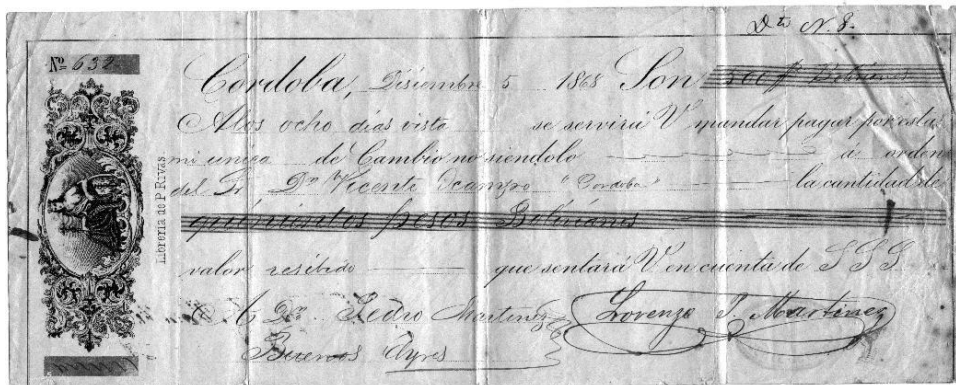 Dto N. 8.
No 632
Cordoba, Disiembre 5 1868 Son 500 $ Bolivianos
A los ocho dias vista se servirá V mandar pagar por esta
mi unica de Cambio no siendolo á orden
del Sr Dn Vicente Ocampo "Cordoba" la cantidad de
quinientos pesos Bolivianos
valor resibido que sentará V en cuenta de S S S
A Dn Pedro Martinez
Lorenzo J. Martinez
Buenos Ayres
Libreria de P Rivas